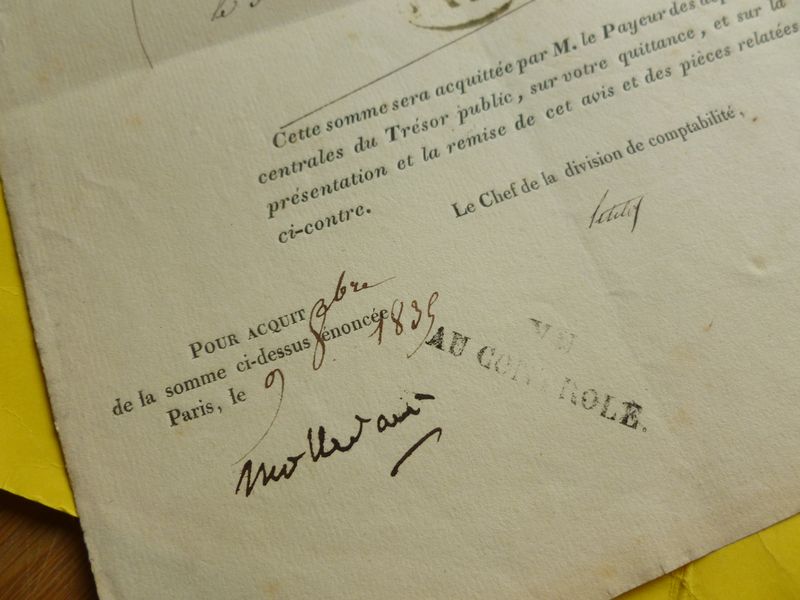 le
Cette somme sera acquittée par M. le Payeur des
centrales du Trésor public, sur votre quittance, et sur la
présentation et la remise de cet avis et des pièces relatées
ci-contre.
Le Chef de la division de comptabilité,
POUR ACQUIT
de la somme ci-dessus énoncée
Paris, le 9 8bre 1835
VU
AU CONTROLE.